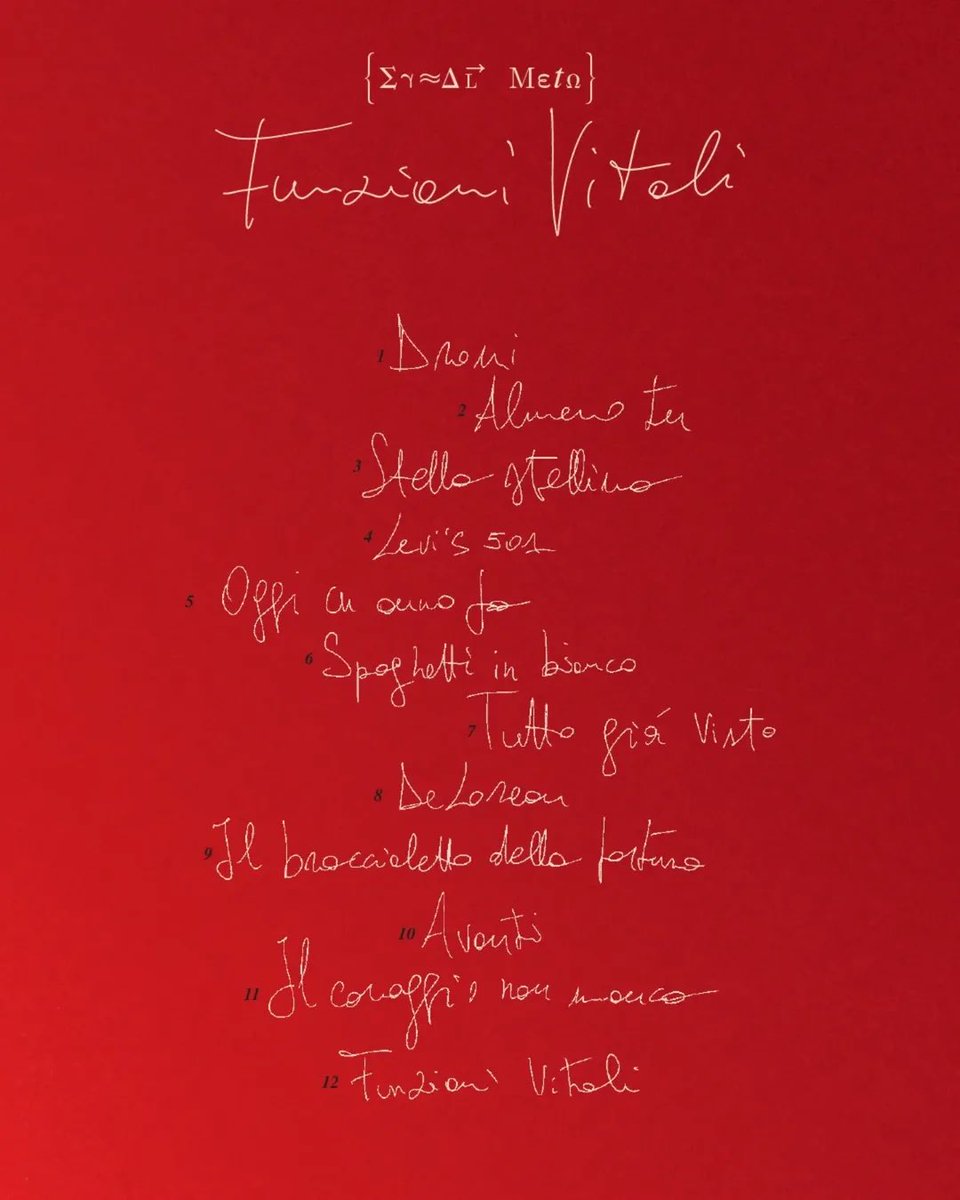 {Σγ≈ΔL⃗ MεtΩ}
Funzioni Vitali
1 Droni
2 Almeno tu
3 Stella stellina
4 Levi's 501
5 Oggi un anno fa
6 Spaghetti in bianco
7 Tutto giá visto
8 DeLorean
9 Il braccialetto della fortuna
10 Avanti
11 Il coraggio non manca
12 Funzioni Vitali